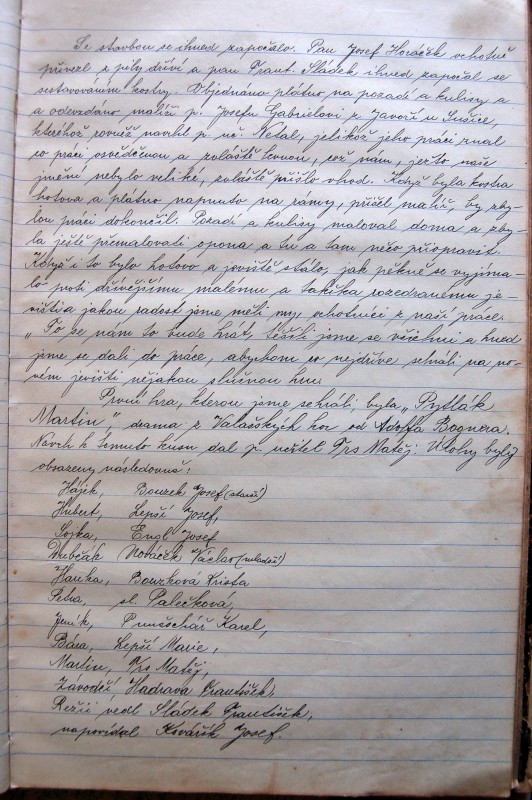 Se stavbou se ihned započalo. Pan Josef Horáček ochotně
převezl z pily dříví a pan Frant. Sládek ihned započal se
sestavováním kostry. Objednáno plátno na pozadí a kulisy a
a odevzdáno malíři p. Josefu Gabrielovi z Javoří u Sušice,
kteréhož rovněž navrhl p. uč. Netal, jelikož jeho práci znal
co práci osvědčenou a zvláště levnou, což nám, jezto naše
jmění nebylo veliké, zvláště přišlo vhod. Když byla kostra
hotova a plátno napnuto na rámy, přišel malíř, by zby-
lou práci dokončil. Pozadí a kulisy maloval doma a zby-
la ještě přemalovati opona a tu a tam něco přiopravit.
Když i to bylo hotovo a jeviště stálo, jak pěkně se vyjíma-
lo proti dřívějšímu malému a takřka rozedranému je-
višti a jakou radost jsme měli my, ochotníci z naší práce.
„To se nám to bude hrát, těšili jsme se všichni a hned
jsme se dali do práce, abychom co nejdříve sehráli na no-
vém jevišti nějakou slušnou hru.
První hra, kterou jsme sehráli, byla „Pytlák
Martin", drama z Valašských hor od Adolfa Bognera.
Návrh k tomuto kusu dal p. učitel Trs Matěj. Úlohy byly
obsazeny následovně:
Hájek, Bouzek Josef (starší)
Hubert, Lepší Josef,
Sojka, Engl Josef
Dubčák Nováček Václav (mladší)
Hanka, Bouzková Krista
Petra, sl. Palečková,
Jeník, Punčochář Karel,
Bára, Lepší Marie,
Martin, Trs Matěj,
Závodčí, Hadrava František.
Režii vedl Sládek František,
napovídal Kovářík Josef.